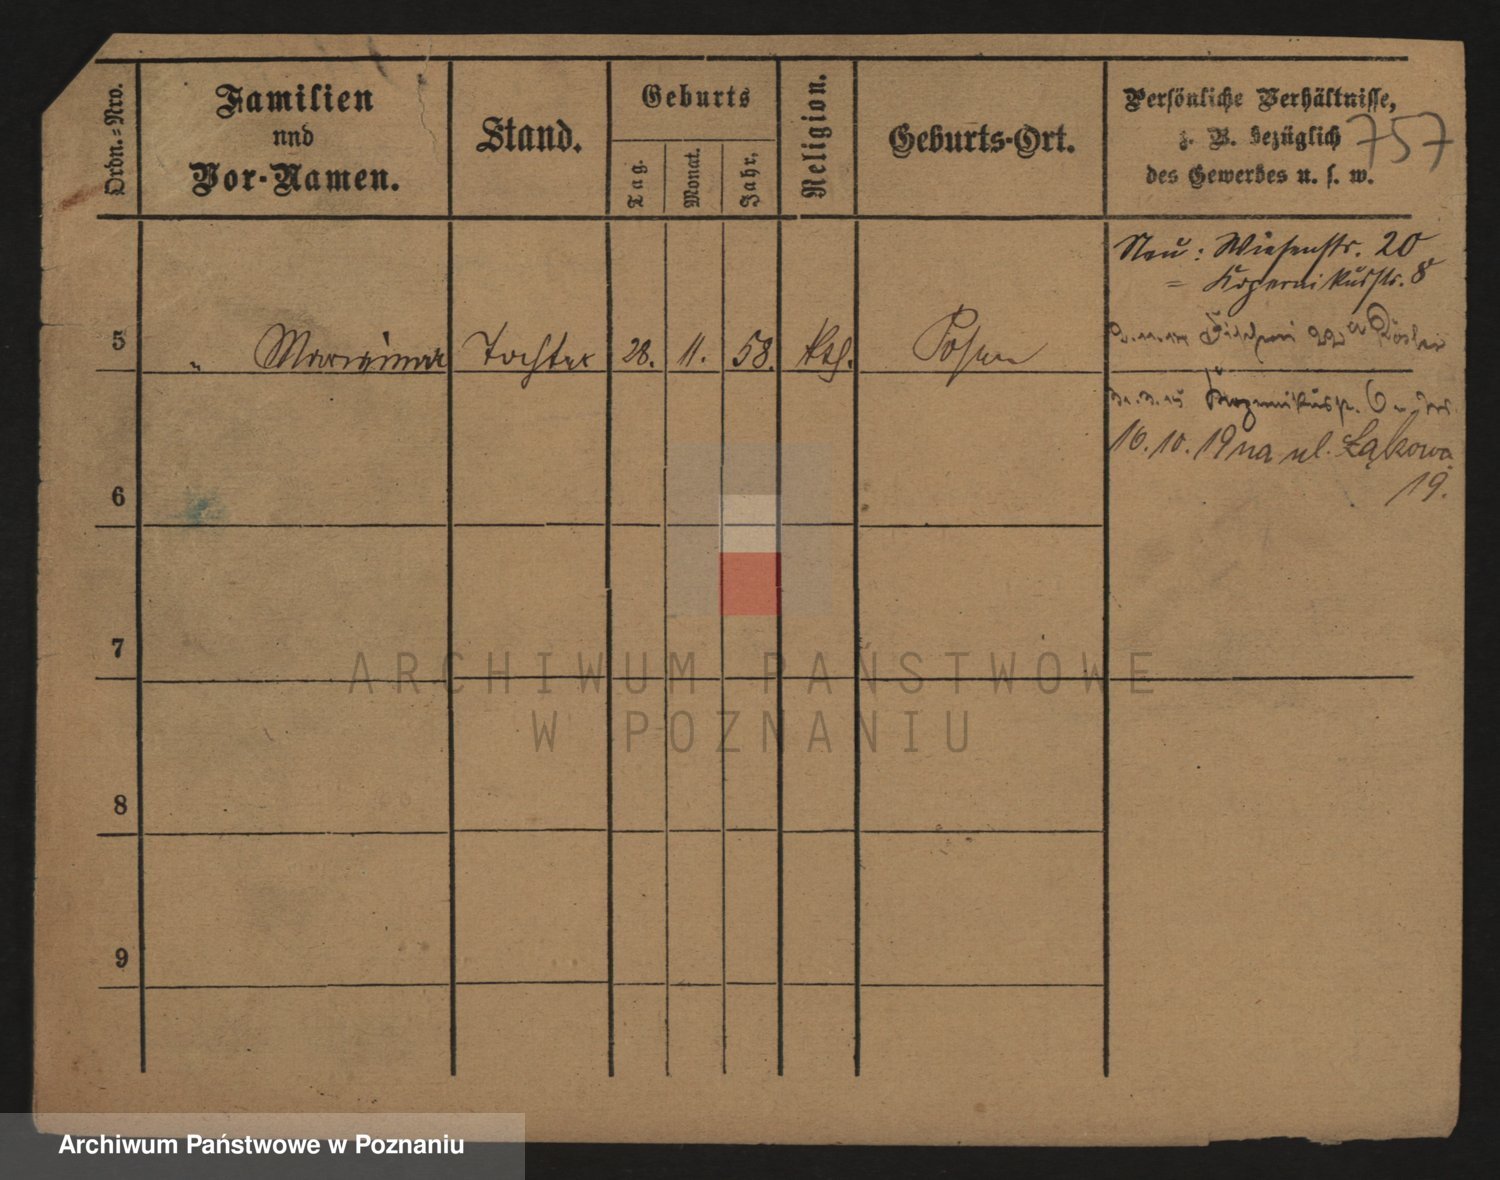 Ordn.=Nro.
Familien
und
Vor-Namen.
Stand.
Geburts
Tag.
Monat.
Jahr.
Religion.
Geburts-Ort.
Persönliche Verhältnisse,
z. B. bezüglich
des Gewerbes u. s. w.
757
Neu: Wiesenstr. 20
= Kopernikusstr. 8
5 " Tochter 28. 11. 58. kth. Posen
16. 10. 19 na ul. Łąkowa
19.
6
7
8
9
ARCHIWUM PAŃSTWOWE
W POZNANIU
Archiwum Państwowe w Poznaniu